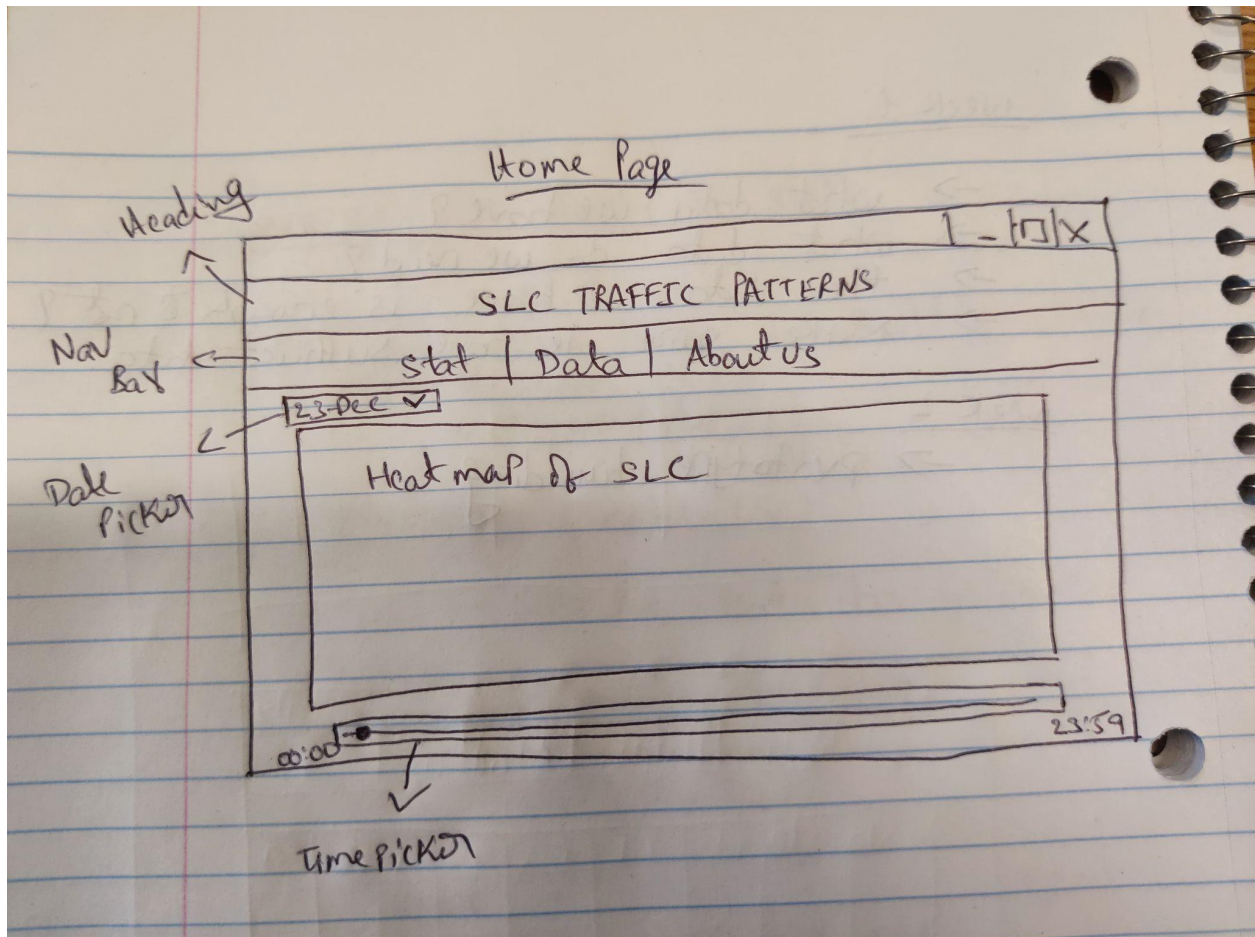 Home Page
Heading
SLC TRAFFIC PATTERNS
Nav
Bar
Stat | Data | About us
23-Dec
Date
Picker
Heat map of SLC
00:00
23:59
Time Picker